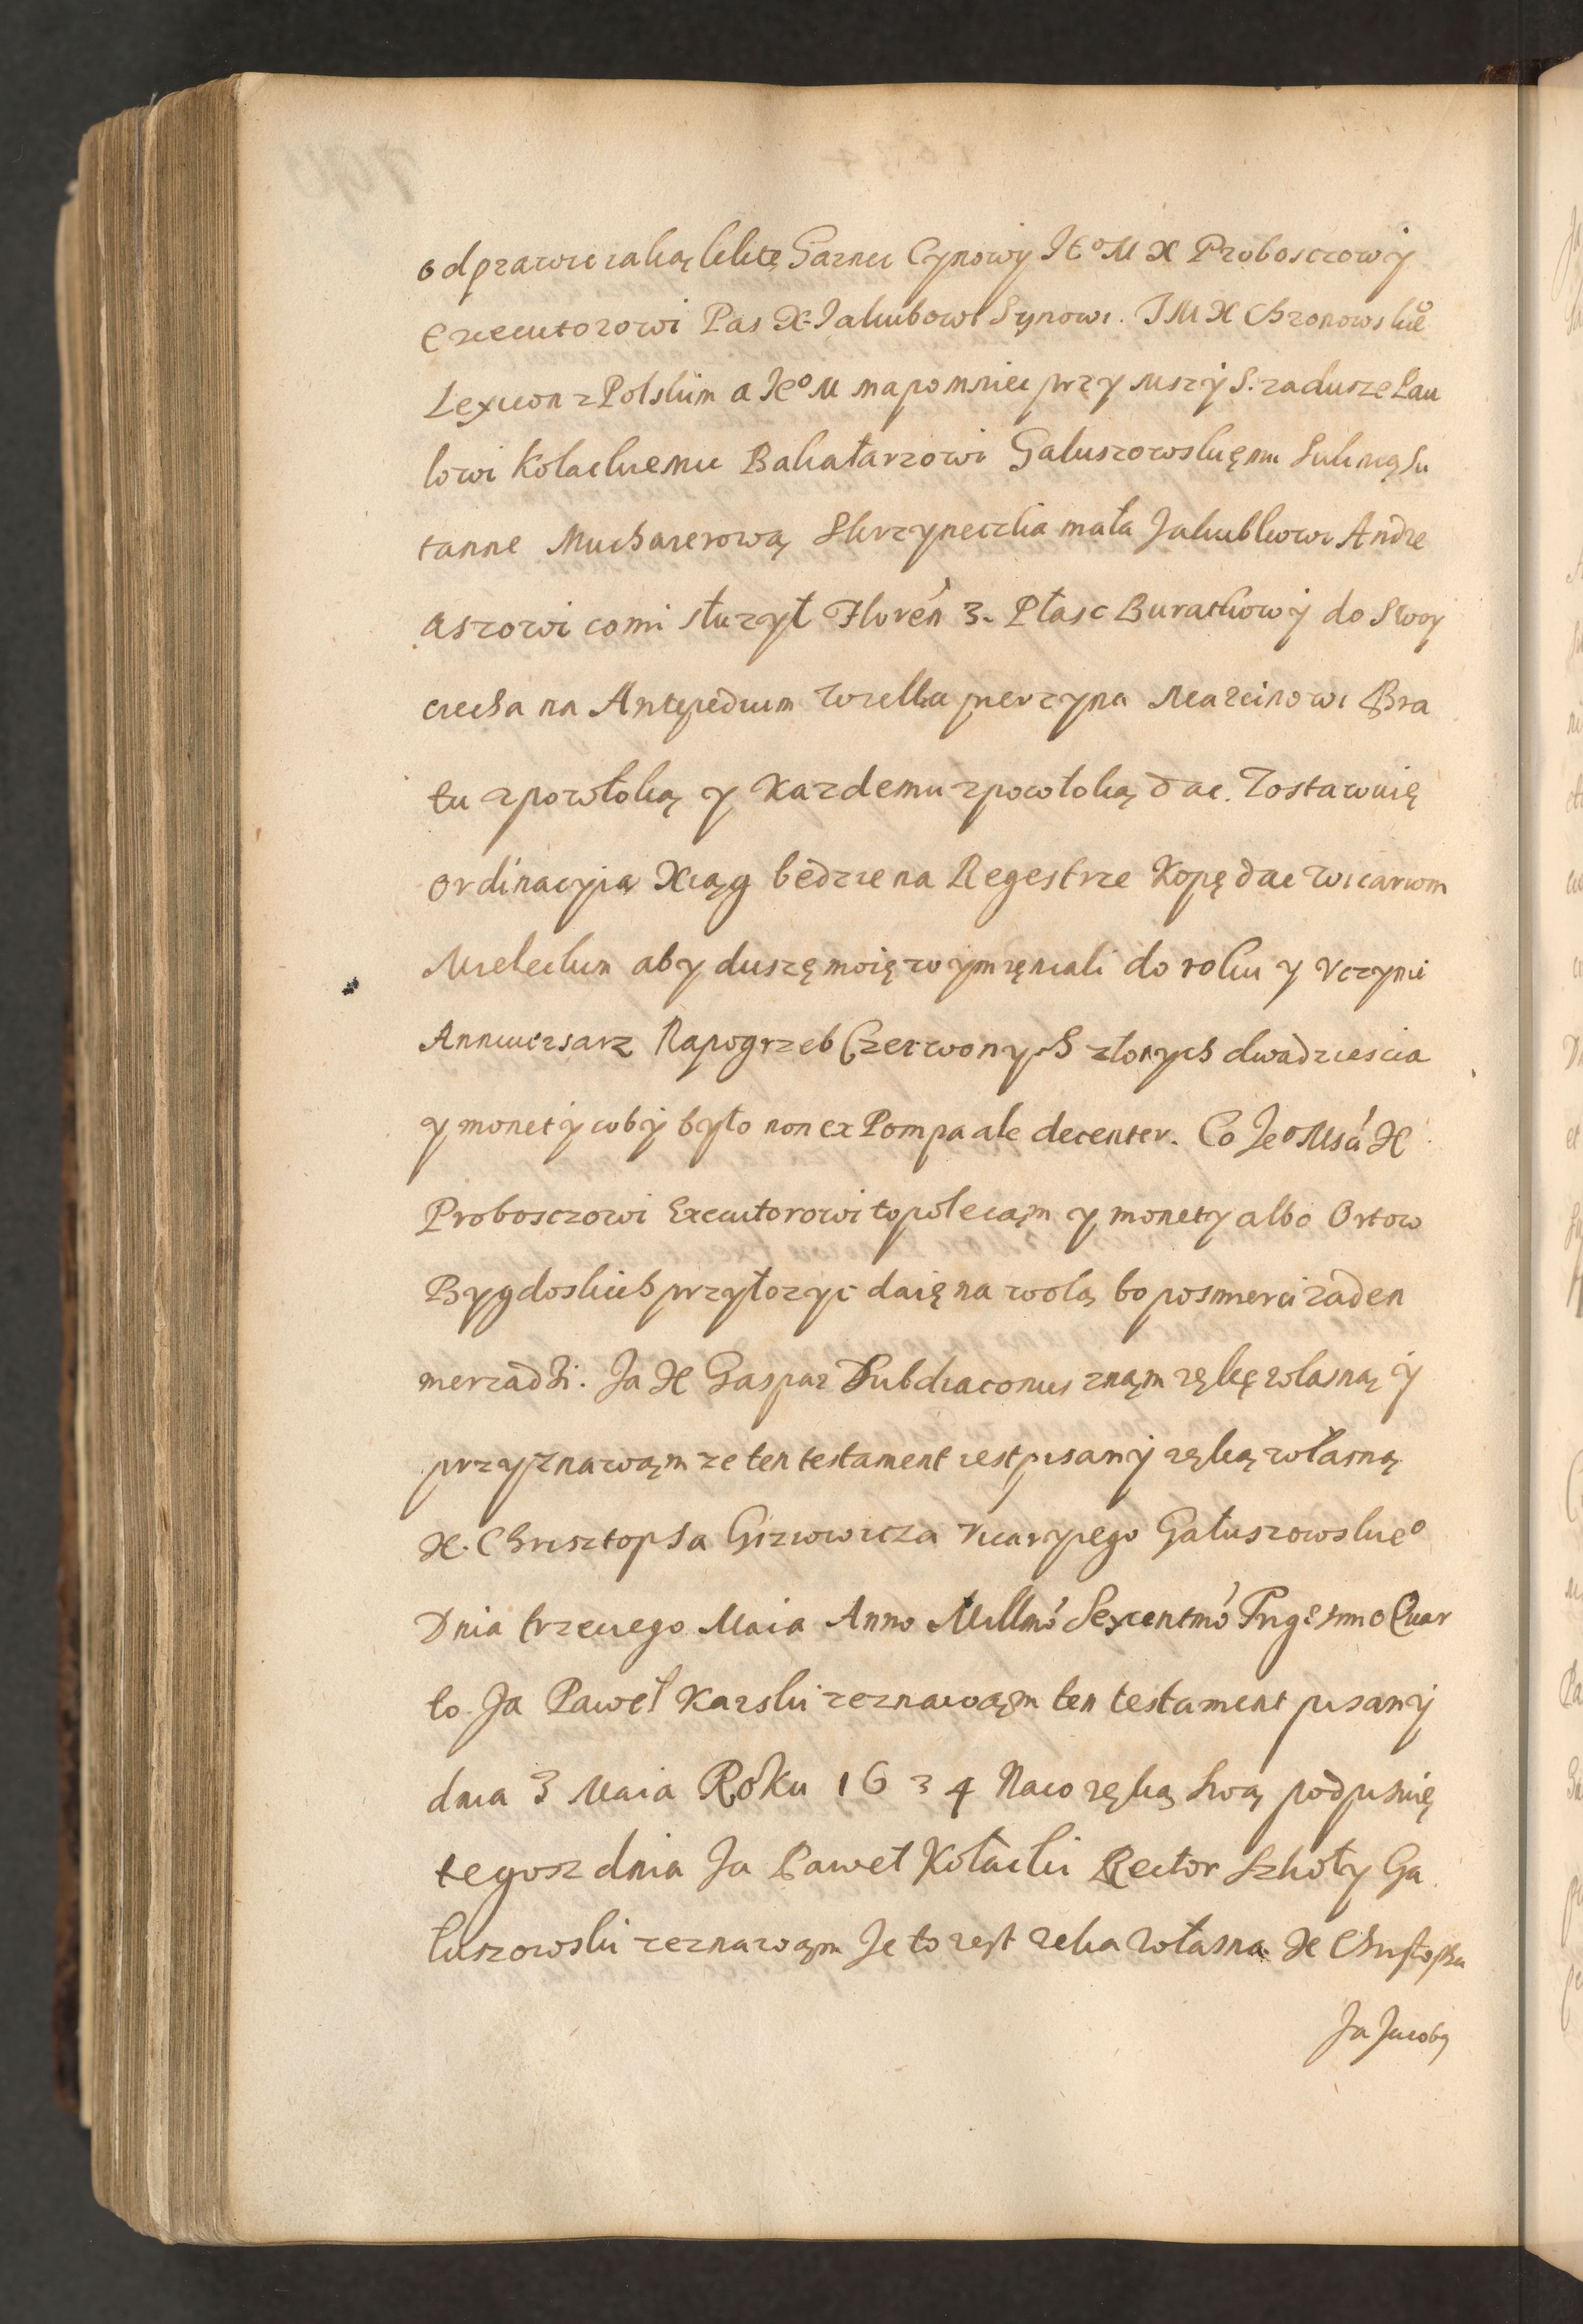 odprawic iaką Garnci Cynowy Ie° M X Proboszczowy
Executorowi Pas X. Iakubowi Synowi. IM X Chronowskie°
Lexicon z Polskim a Ie° M napomniec przy Mszy S. za dusze Pau
lowi Kolackiemu Bakałarzowi Galuszowskięmu Suknią Su
tanne Mucharerową Skrzyneczka mała Jakubkowi Andre
aszowi co mi słuzył Floren 3. Płasc Buratkowy do S Woy
ciecha na Antepedium Wielka pierzyna Marcinowi Bra
tu z powłoką y Kazdemu z powłoką dac. Zostawuię
ordinacyią Xiąg bedzie na Regestrze Kopę dac Wicariom
Mieleckim aby duszę moię wymięniali do roku y Vczynic
Anniuersarz Na pogrzeb Czerwonych złotych dwadziescia
y monety coby było non ex Pompa ale decenter. Co Ie° Msci X
Proboszczowi Executorowi to polecąm y monety albo Ortow
Bygdoskich przyłozyc daię na wolą bo po smierci zaden
nierzadzi. Ja X Gaspar Subdiaconus znąm rękę własną y
przyznawąm ze ten testament iest pisany ręką własną
X. Christopha Gizowicza Vicaryiego Gałuszowskie°
Dnia trzeciego Maia Anno Millmo Sexcentmo Trigesimo Quar
to. Ja Paweł Karski zeznawąm ten testament pisany
dnia 3 Maia Roku 1634 Naco ręką swą podpisuię
tegosz dnia Ja Paweł Kołacki Rector Szkoły Ga
łuszowski zeznawąm Ze to iest reka własna X Christopha
Ja Jacoby